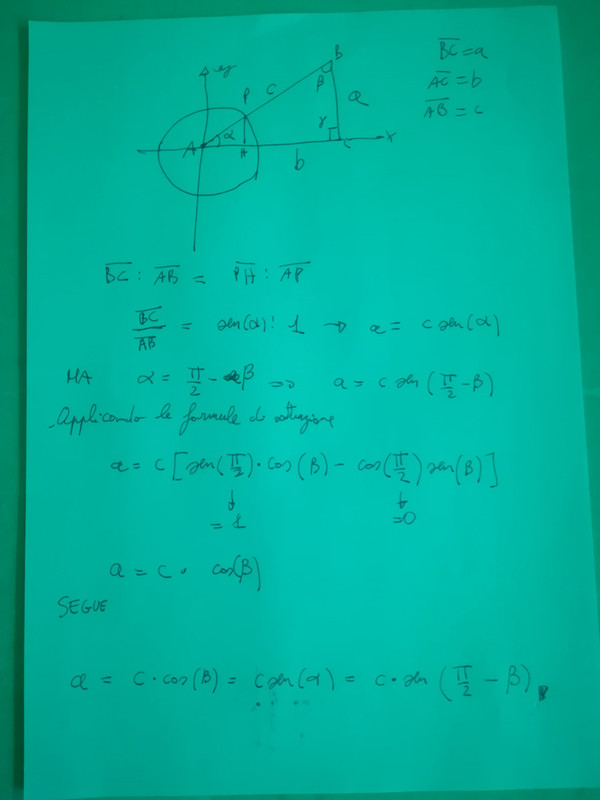 y
B
B̅C̅ = a
β
P
c
a
A̅C̅ = b
α
γ
A̅B̅ = c
A
H
C
x
b
B̅C̅ : A̅B̅ = P̅H̅ : A̅P̅
B̅C̅/A̅B̅ = sen(α) : 1 → a = c sen(α)
MA α = π/2 - β => a = c sen(π/2 - β)
Applicando le formule di sottrazione
a = c [sen(π/2) · cos(β) - cos(π/2) sen(β)]
↓ ↓
= 1 =0
a = c · cos(β)
SEGUE
a = c · cos(β) = c sen(α) = c · sen(π/2 - β)